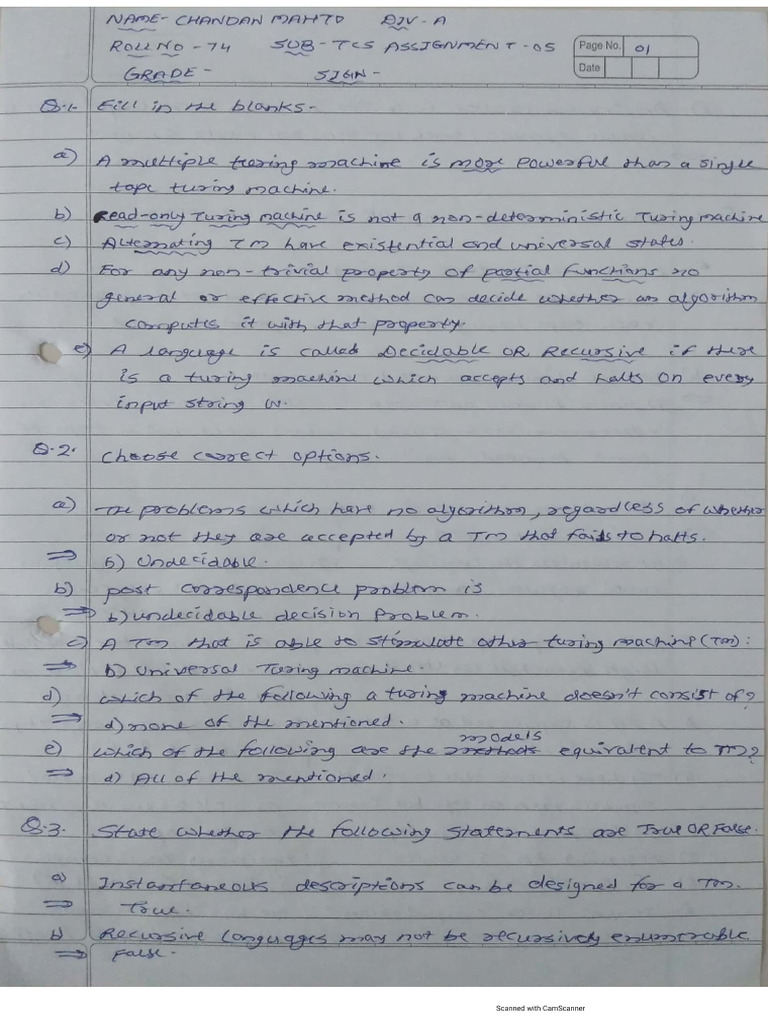 NAME- CHANDAN MAHTO DIV-A
ROLL NO - 74 SUB-TCS ASSIGNMENT-05 Page No. 01
GRADE- SIGN- Date
Q.1. Fill in the blanks-
a) A multiple turing machine is more powerful than a single
tape turing machine.
b) Read-only Turing machine is not a non-deterministic Turing machine
c) Alternating TM have existential and universal states.
d) For any non-trivial property of partial functions no
general or effective method can decide whether an algorithm
computes it with that property.
e) A language is called Decidable OR Recursive if there
is a turing machine which accepts and halts on every
input string W.
Q.2. Choose correct options.
a) The problems which have no algorithm, regardless of whether
or not they are accepted by a TM that fails to halts.
⇒ b) Undecidable.
b) post correspondence problem is
⇒ b) undecidable decision problem.
c) A TM that is able to stimulate other turing machine (TM):
⇒ b) Universal Turing machine.
d) which of the following a turing machine doesn't consist of?
⇒ d) none of the mentioned.
e) which of the following are the models equivalent to TM?
⇒ d) All of the mentioned.
Q.3. State whether the following statements are True OR False.
a) Instantaneous descriptions can be designed for a TM.
⇒ True.
b) Recursive languages may not be recursively enumerable.
⇒ False.
Scanned with CamScanner